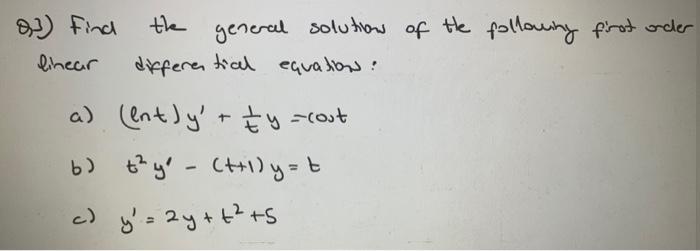 Q3) Find the general solution of the following first order
linear differential equations:
a) (lnt)y' + 1/t y = cost
b) t² y' - (t+1)y = t
c) y' = 2y + t² + 5